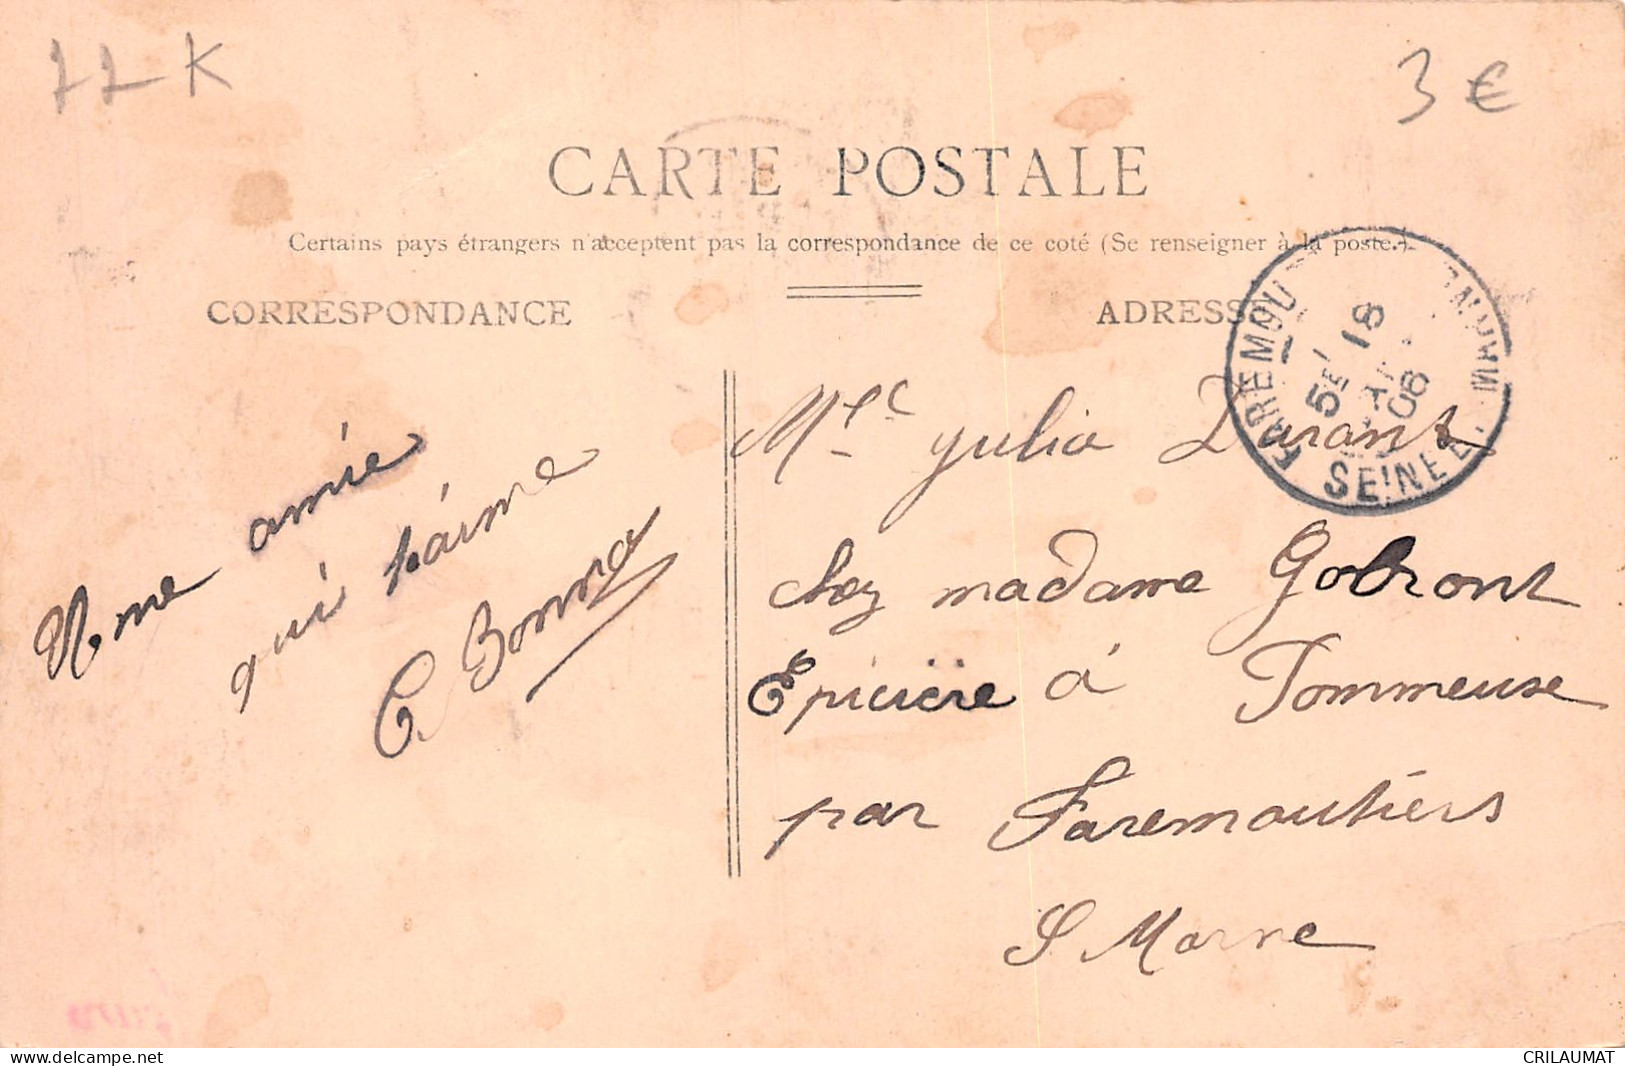 77 K
3 €
CARTE POSTALE
Certains pays étrangers n'acceptent pas la correspondance de ce coté (Se renseigner à la poste.)
CORRESPONDANCE
ADRESSE
FAREMOU
SEINE
MARNE
5E
18
06
Mlle julia Durant
chez madame Gobront
Epicière à Pommeuse
par Faremoutiers
S Marne
Une amie
qui t'aime
C Bonna
delcampe.net
CRILAUMAT